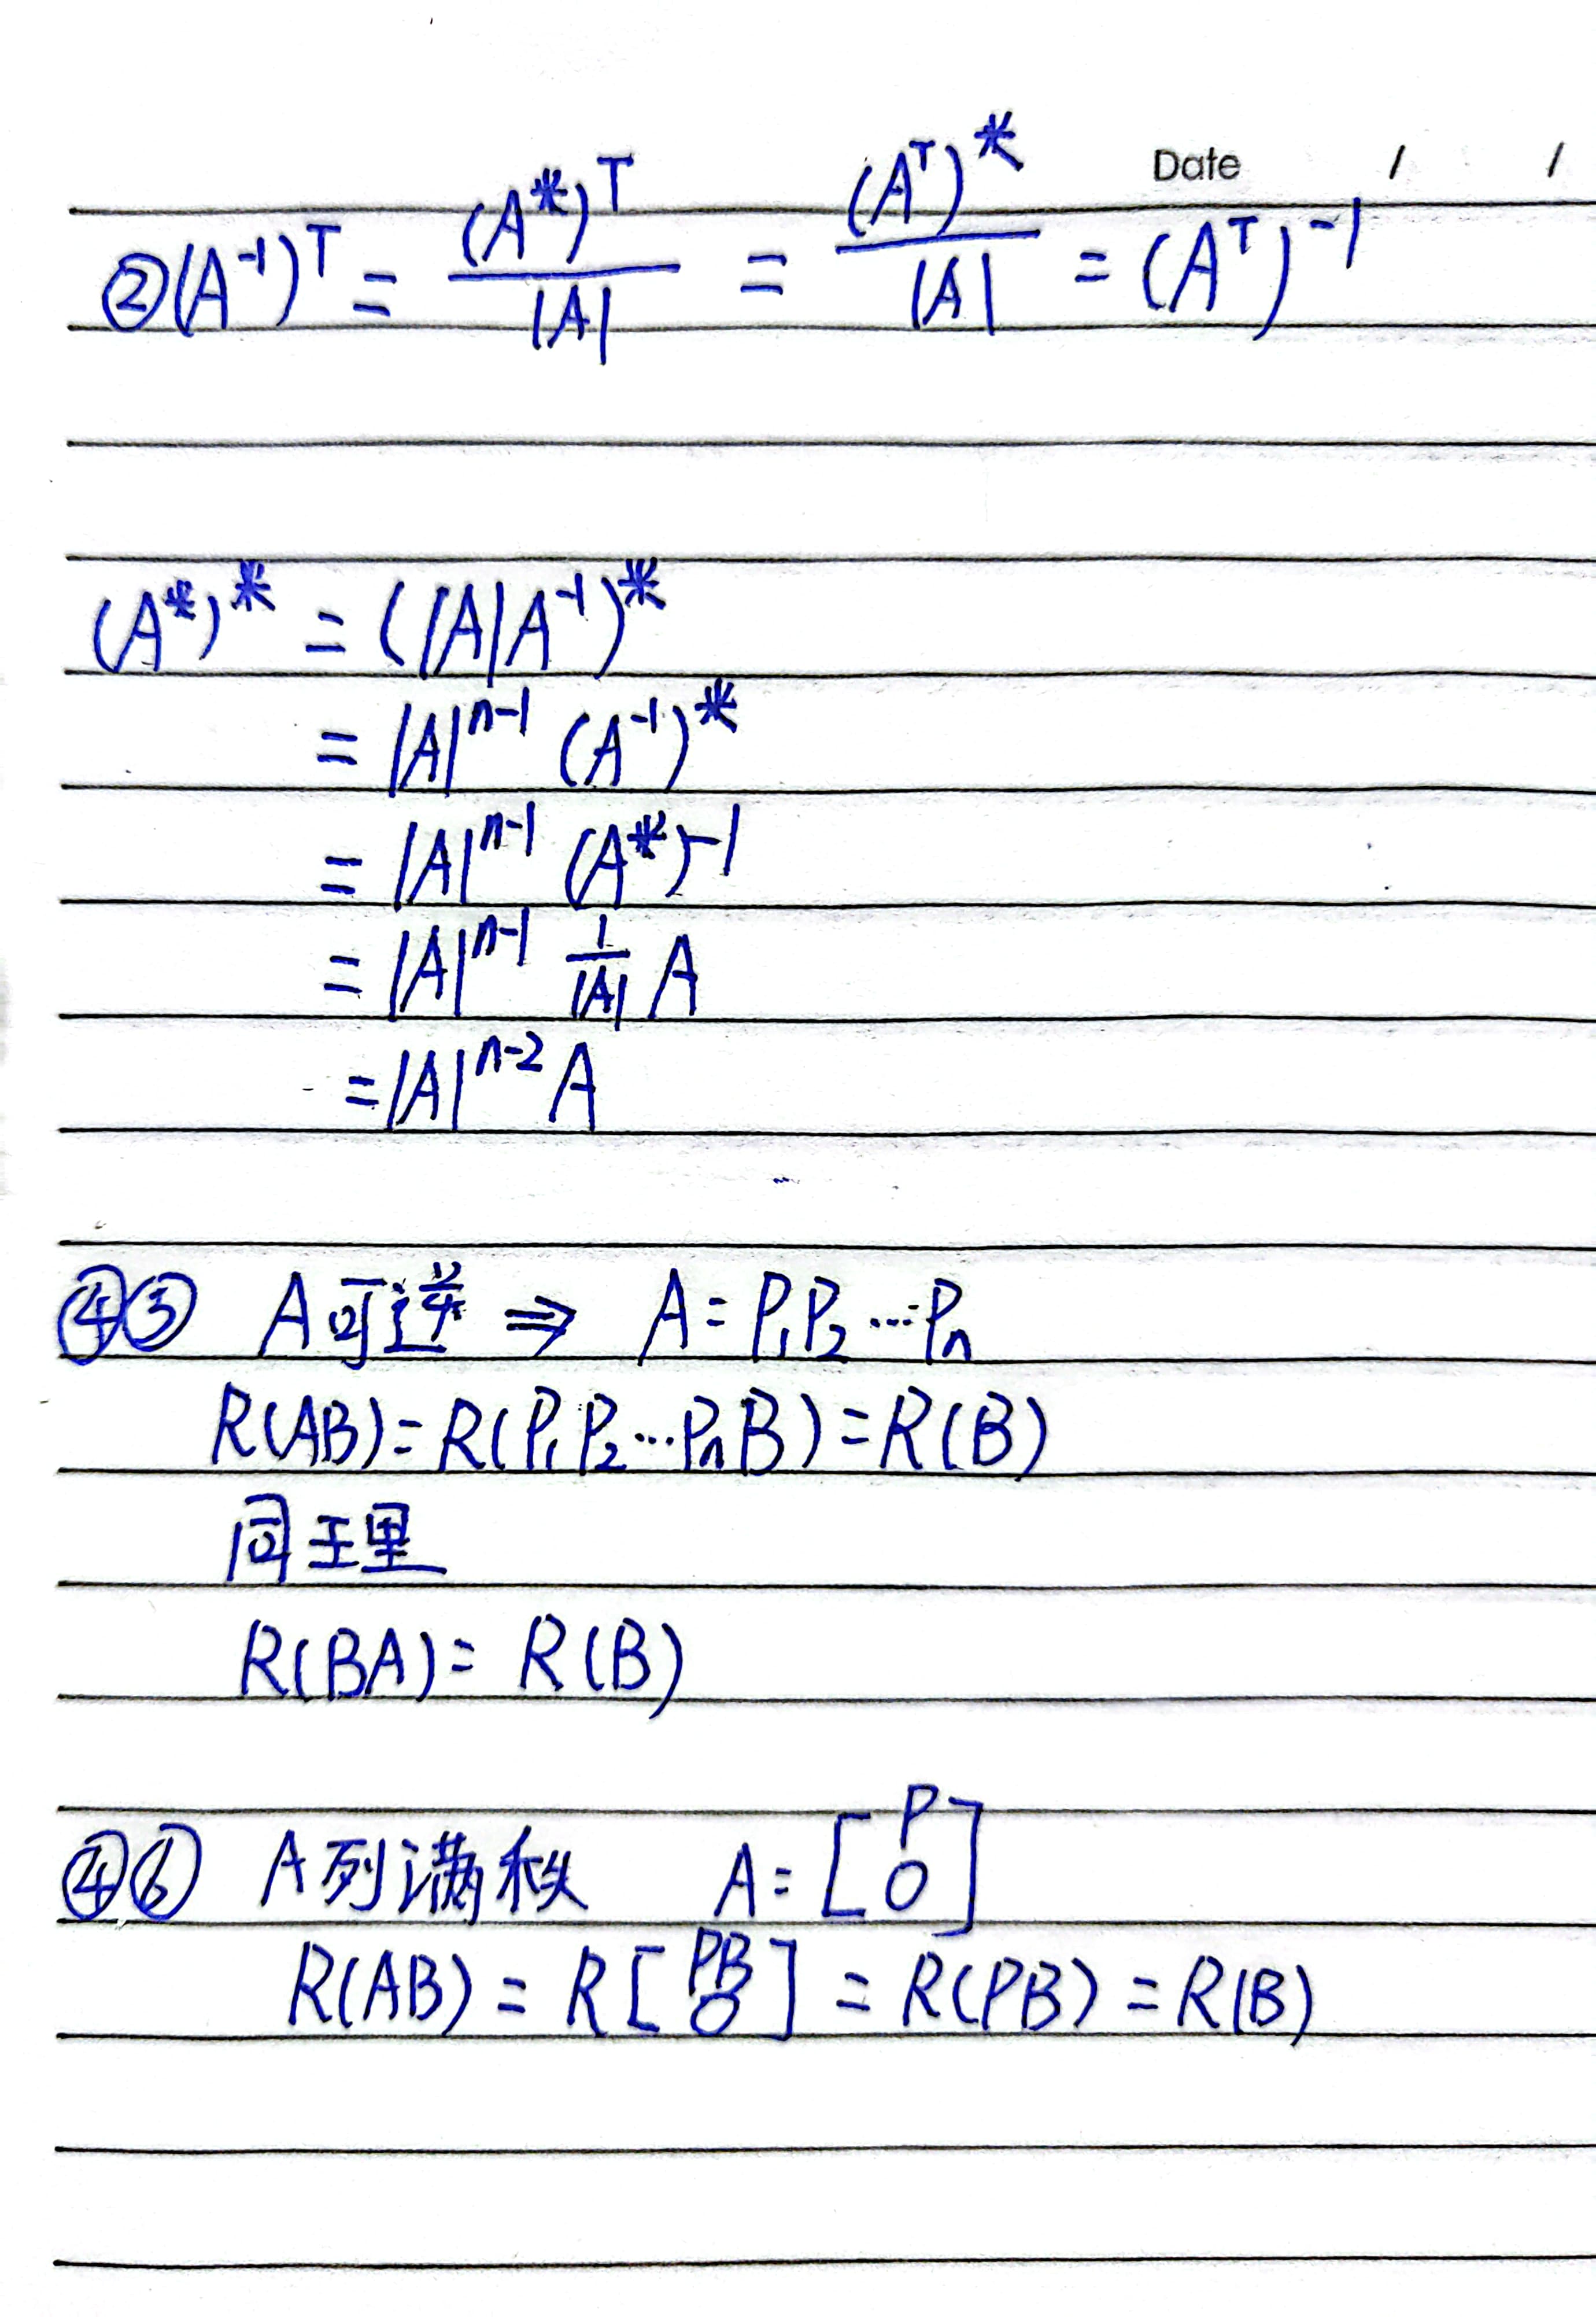 Date / /
②(A⁻¹)ᵀ = (A*)ᵀ/|A| = (Aᵀ)*/|A| = (Aᵀ)⁻¹
(A*)* = (|A|A⁻¹)*
= |A|ⁿ⁻¹ (A⁻¹)*
= |A|ⁿ⁻¹ (A*)⁻¹
= |A|ⁿ⁻¹ 1/|A| A
= |A|ⁿ⁻² A
④⑤ A可逆 ⇒ A = P₁P₂…Pₙ
R(AB) = R(P₁P₂…PₙB) = R(B)
同理
R(BA) = R(B)
④⑥ A列满秩 A = [P; O]
R(AB) = R[PB; O] = R(PB) = R(B)